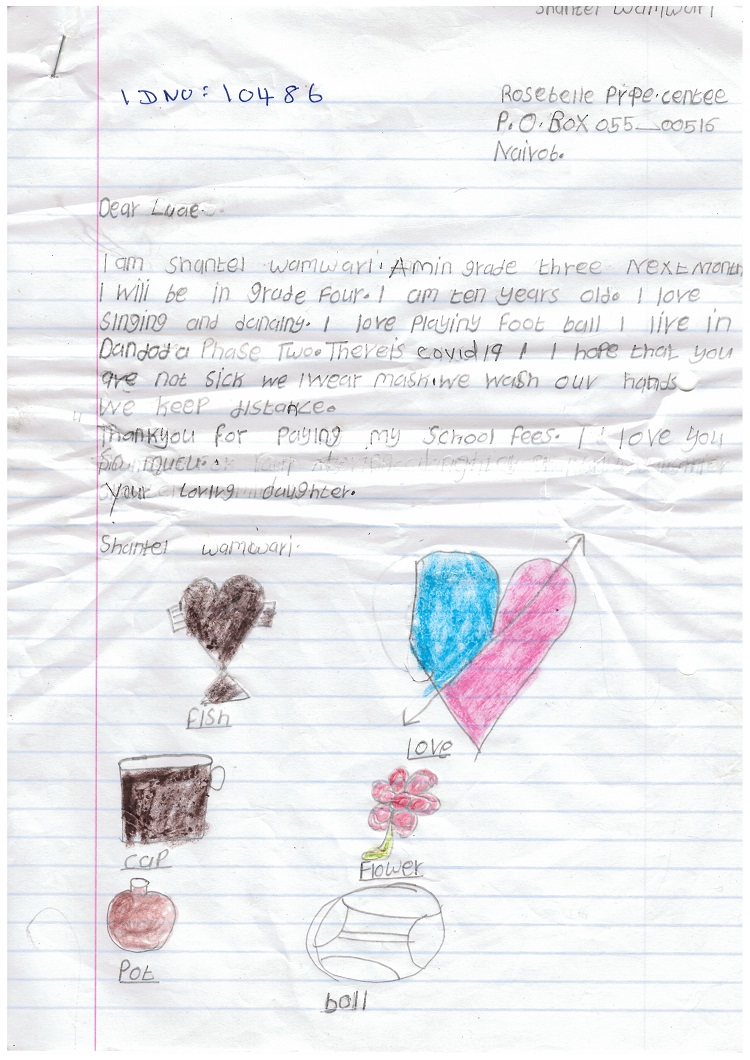 Shantel Wamwari
IDNO: 10486
Rosebelle Pripe.centee
P.O.BOX 055__00516
Nairob.
Dear Luae.
I am Shantel wamwari. Amin grade three Next Month
I will be in grade Four. I am ten years old. I love
singing and dancing. I love Playiny Foot ball I live in
Dandoda Phase Two. There is covid 19 I I hope that you
are not sick we I wear mask. we wash our hands
We keep distance.
Thankyou for Paying my School Fees. I I love you
So much.
your loving daughter.
Shantel wamwari.
Fish
Love
cup
Flower
Pot
boll